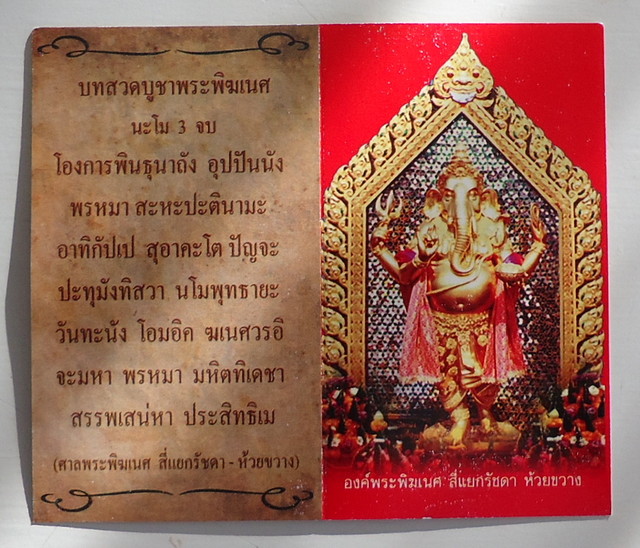 บทสวดบูชาพระพิฆเนศ
นะโม 3 จบ
โองการพินธุนาถัง อุปปันนัง
พรหมา สะหะปะตินามะ
อาทิกัปเป สุอาคะโต ปัญจะ
ปะทุมังทิสวา นโมพุทธายะ
วันทะนัง โอมอิค ฆเนศวรอิ
จะมหา พรหมา มหิตทิเดชา
สรรพเสน่หา ประสิทธิเม
(ศาลพระพิฆเนศ สี่แยกรัชดา - ห้วยขวาง)
องค์พระพิฆเนศ สี่แยกรัชดา ห้วยขวาง